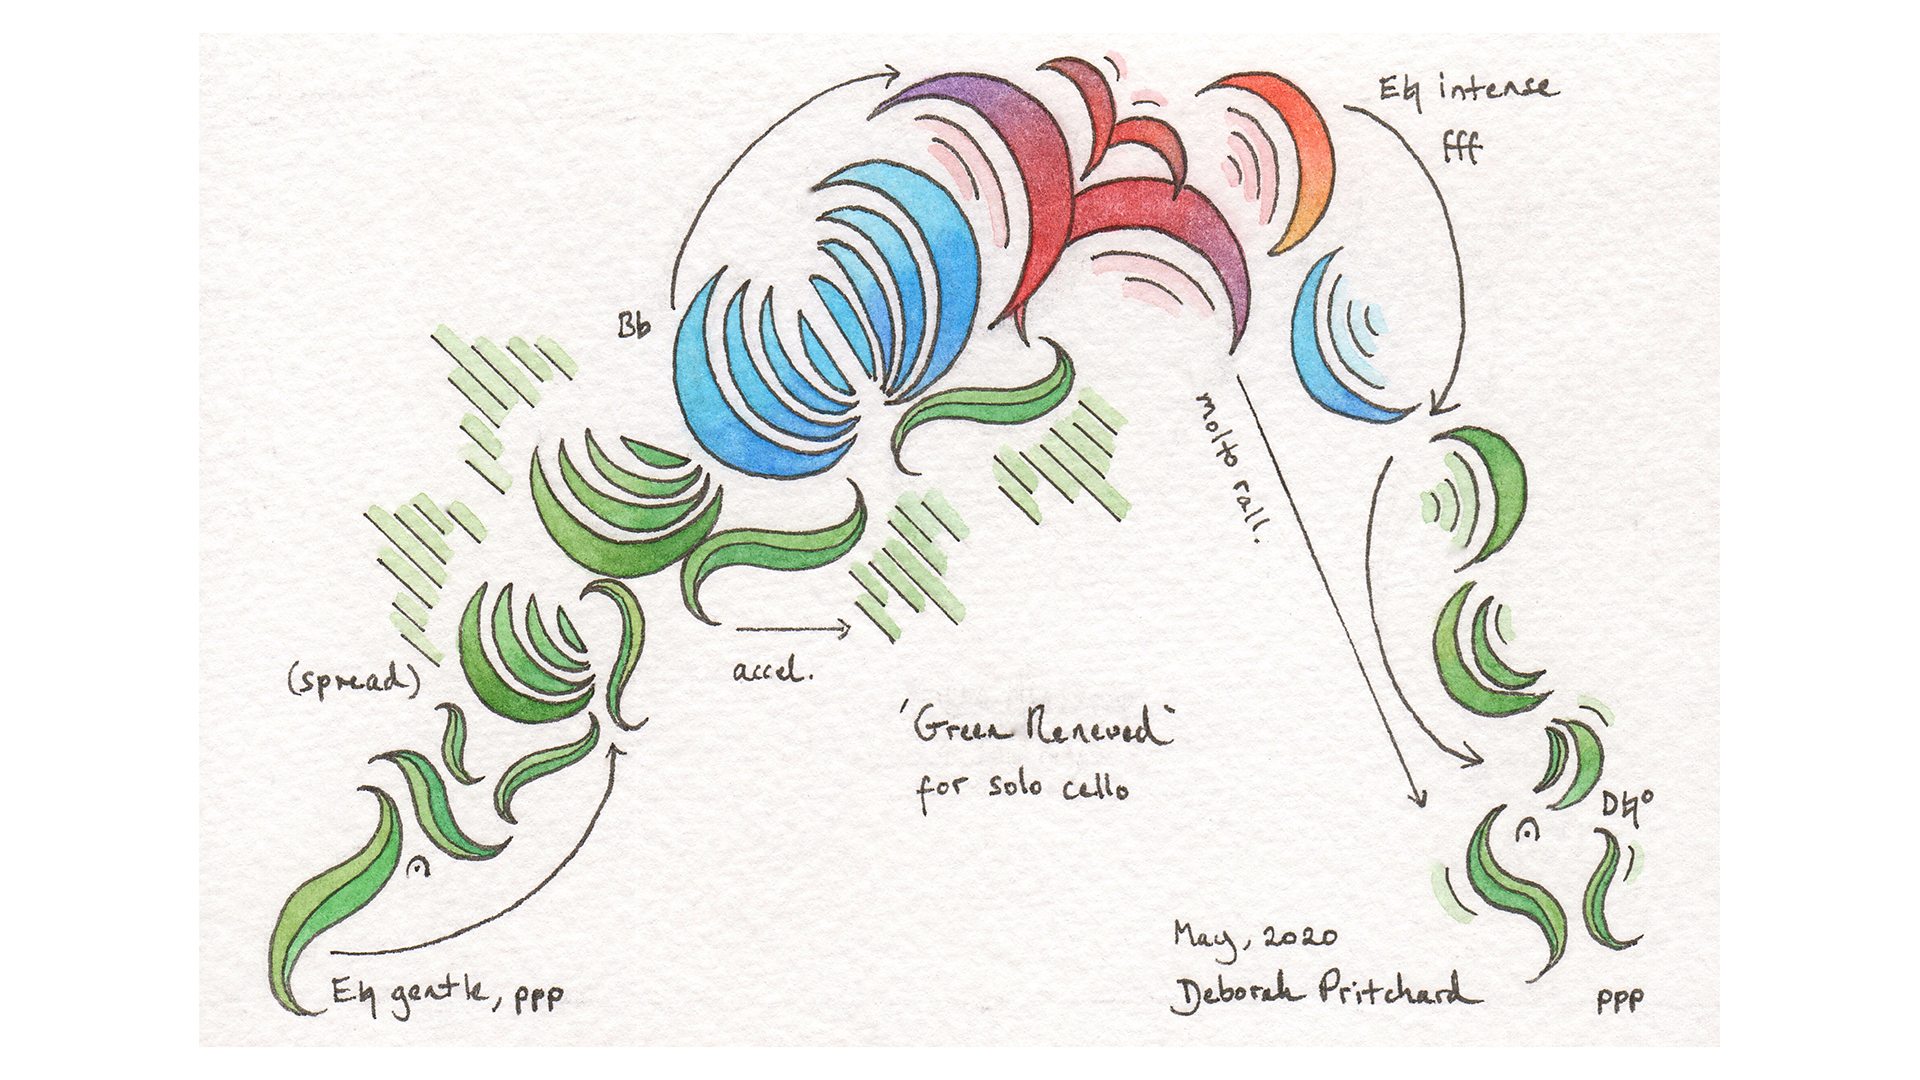 E♮ intense
fff
B♭
molto rall.
(spread)
accel.
'Green Renewed'
for solo cello
D♮°
May, 2020
Deborah Pritchard
E♮ gentle, ppp
ppp